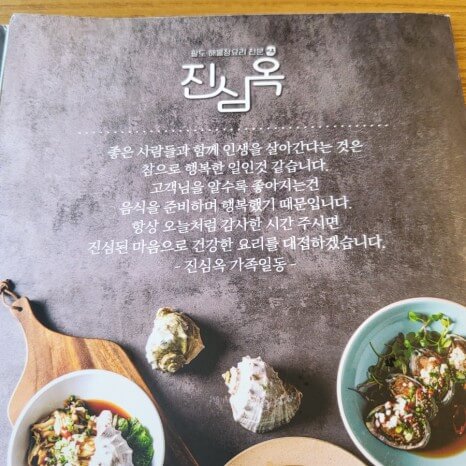 완도 해물장요리 전문
진심옥
좋은 사람들과 함께 인생을 살아간다는 것은
참으로 행복한 일인것 같습니다.
고객님을 알수록 좋아지는건
음식을 준비하며 행복했기 때문입니다.
항상 오늘처럼 감사한 시간 주시면
진심된 마음으로 건강한 요리를 대접하겠습니다.
- 진심옥 가족일동 -